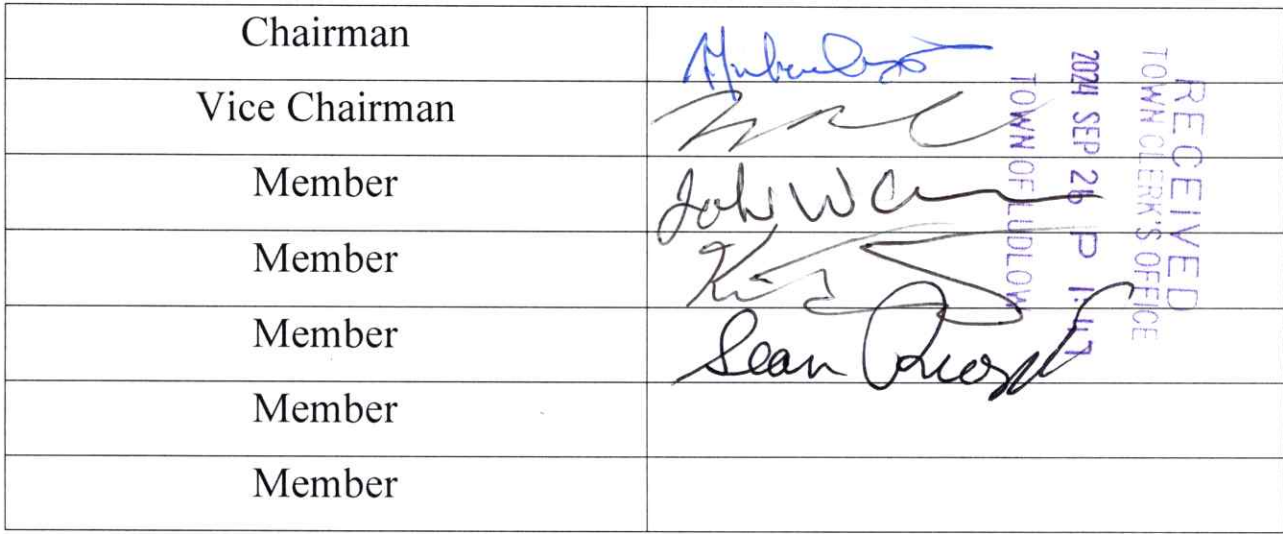 Chairman
Vice Chairman
Member
John W
Member
Member
Sean
Member
Member
RECEIVED
TOWN CLERK'S OFFICE
2024 SEP 26 P 1:47
TOWN OF LUDLOW